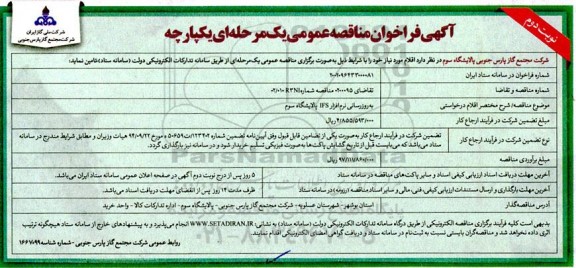 شرکت ملی گاز ایران
شرکت مجتمع گاز پارس جنوبی
نوبت دوم
آگهی فراخوان مناقصه عمومی یک مرحله‌ای یکپارچه
شرکت مجتمع گاز پارس جنوبی پالایشگاه سوم در نظر دارد اقلام مورد نیاز خود را با شرایط ذیل به‌صورت برگزاری مناقصه عمومی یک‌مرحله‌ای از طریق سامانه تدارکات الکترونیکی دولت (سامانه ستاد) تامین نماید:
شماره فراخوان در سامانه ستاد ایران
شماره مناقصه و تقاضا
تقاضای ۰۲۰۰۰۹۵ مناقصه شماره
موضوع مناقصه/ شرح مختصر اقلام درخواستی
به‌روزرسانی نرم‌افزار IFS پالایشگاه سوم
مبلغ تضمین شرکت در فرآیند ارجاع کار
۴/۸۵۵/۵۹۳/۰۰۰
نوع تضمین شرکت در فرآیند ارجاع کار
تضمین شرکت در فرآیند ارجاع کار به‌صورت یکی از تضامین قابل قبول وفق آیین‌نامه تضمین شماره ۱۲۳۴۰۲/ت۵۰۶۵۹ه مورخ ۹۴/۰۹/۲۲ هیات وزیران و مطابق شرایط مندرج در سامانه
ستاد می‌باشد که می‌بایست قبل از تاریخ گشایش پاکت‌ها به‌صورت فیزیکی تسلیم خریدار شود و در سامانه نیز بارگذاری گردد.
مبلغ برآوردی مناقصه
۹۷/۱۱۱/۸۶۰/۰۰۰
آخرین مهلت دریافت اسناد ارزیابی کیفی اسناد و سایر پاکت‌های مناقصه در سامانه ستاد
۵ روز پس از درج نوبت دوم آگهی در صفحه اعلان عمومی سامانه ستاد ایران می‌باشد.
آخرین مهلت بارگذاری و ارسال مستندات ارزیابی کیفی، فنی، مالی و سایر اسناد مناقصه در سامانه ستاد
ظرف مدت ۱۴ روز پس از انقضای مهلت دریافت اسناد می‌باشد.
آدرس مناقصه‌گذار
استان بوشهر- شهرستان عسلویه - شرکت مجتمع گاز پارس جنوبی- پالایشگاه سوم - اداره تدارکات کالا - واحد خرید
بدیهی است کلیه فرآیند برگزاری مناقصه الکترونیکی از طریق درگاه سامانه تدارکات الکترونیکی دولت (سامانه ستاد) به نشانی: WWW.SETADIRAN.IR انجام می‌پذیرد و به پیشنهادهای خارج از سامانه ستاد هیچگونه ترتیب
اثری داده نخواهد شد و مناقصه‌گران بایستی نسبت به ثبت‌نام در سامانه ستاد و دریافت گواهی امضای الکترونیکی اقدام نمایند.
روابط عمومی شرکت مجتمع گاز پارس جنوبی - شماره شناسه ۱۶۶۷۰۹۹